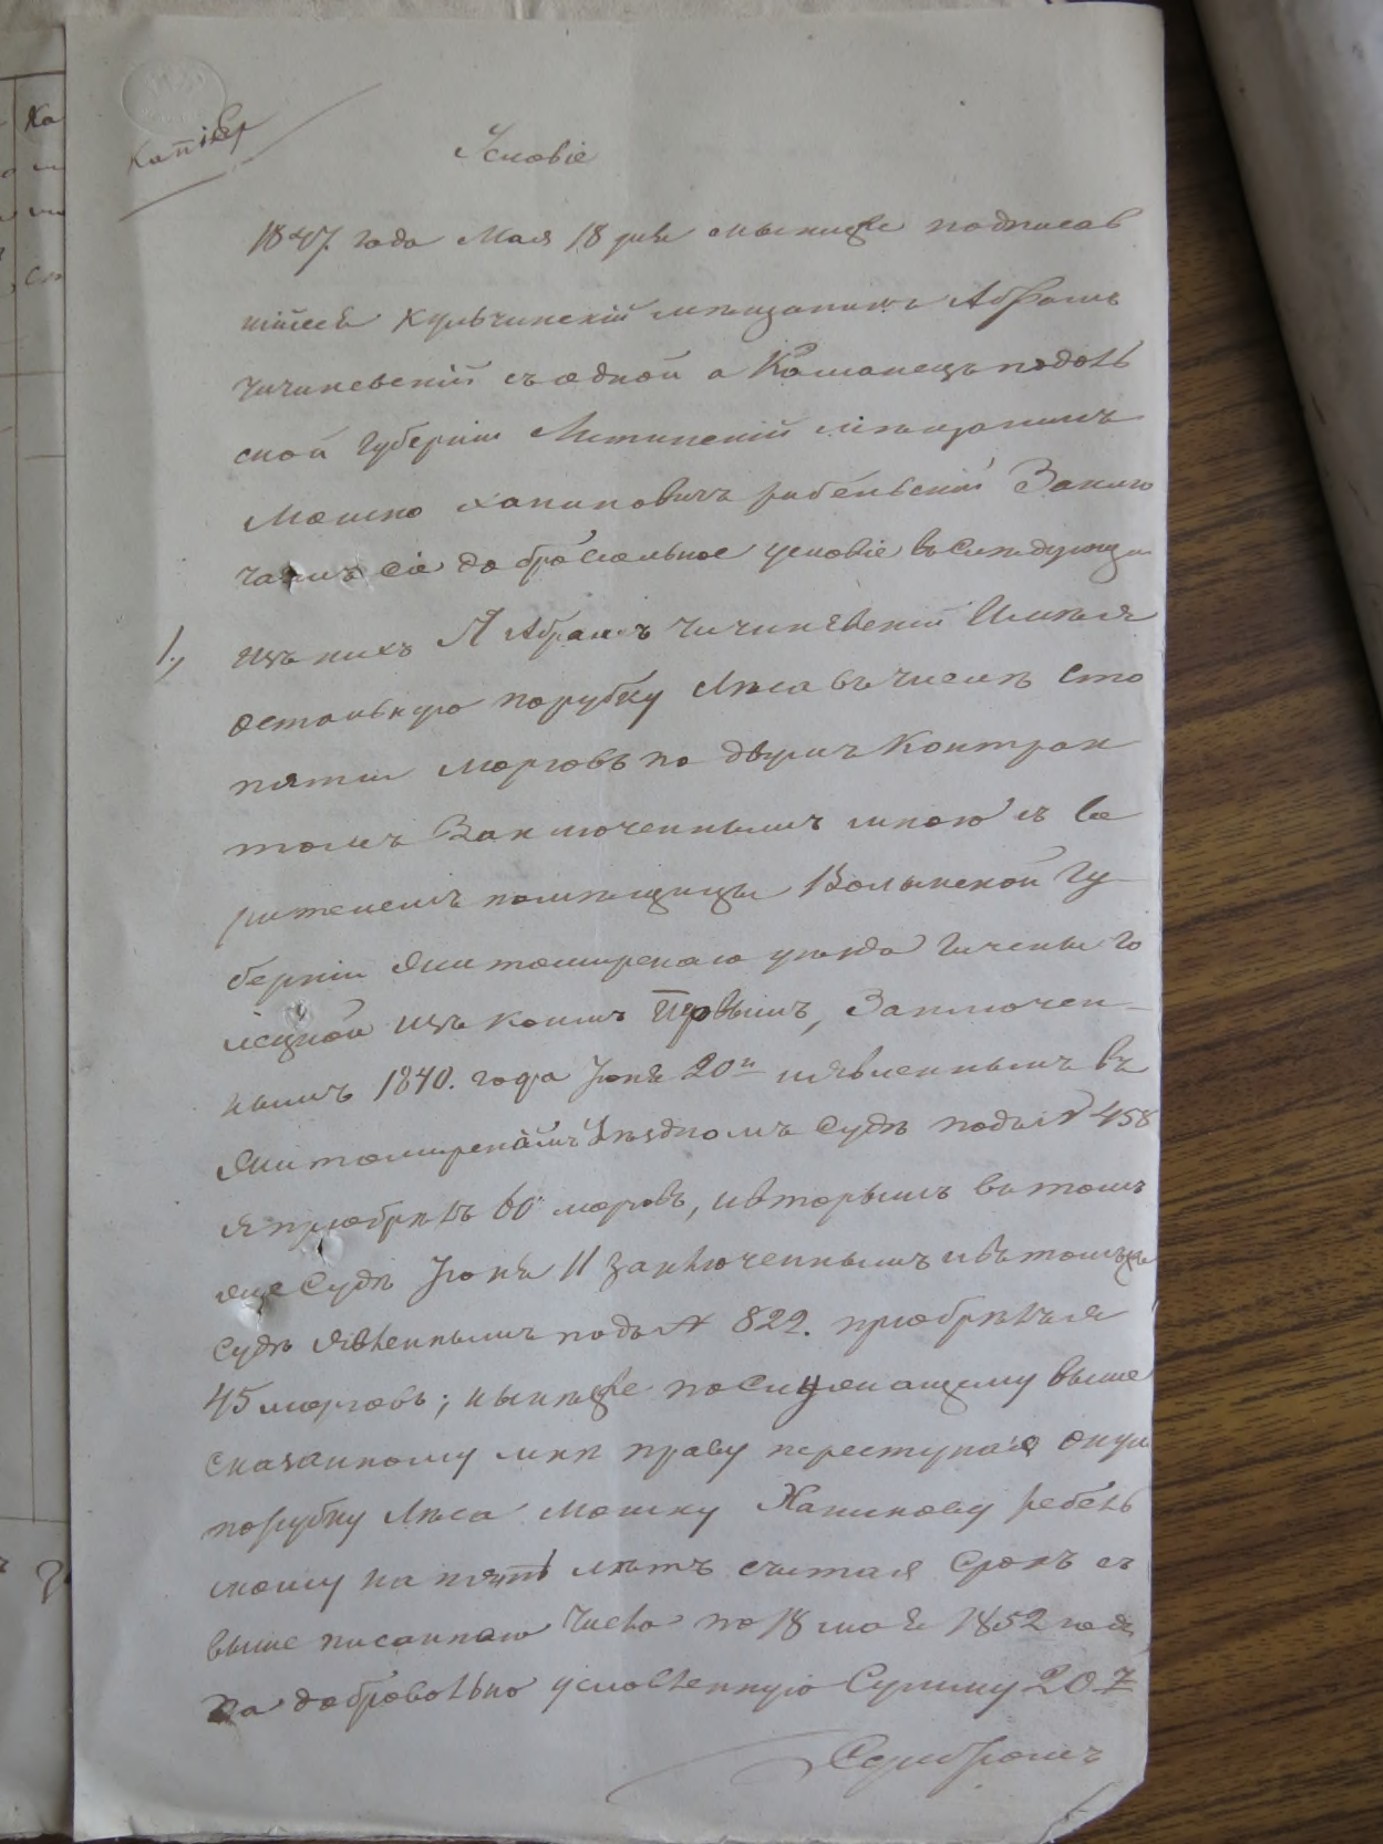 Копія
Условіе
1847 года Мая 18 дня мы ниже подписав
шійсея Кульчинскій мѣщанинъ Абрамъ
Чичиневскій съ одной а Каманецъ подоль
ской Губерніи Литинскій мѣщанинъ
Мошко Хапиновичъ рибельскій Заклю
чаемъ сіе добровольное условіе въ следующем
1., изъ нихъ Я Абрамъ Чичиневскій Имѣя
остальную порубку Лѣса въ числѣ Сто
пяти моргов по двумъ Контрак
томъ Заключеннымъ мною съ
помѣщицы Волынской Гу
берніи Житомирскаго уѣзда
изъ коихъ Первымъ, Заключен
нымъ 1840. года Іюня 20го явленнымъ въ
Житомирскомъ Уѣздномъ Судѣ подъ № 458
я пріобрѣлъ 60 моргов, и вторымъ въ томъ
же Судѣ Іюня 11 заключеннымъ и въ томъ же
Судѣ явленнымъ подъ № 822. пріобрѣлъ я
45 моргов; нынѣже по сему выше
сказанному мнѣ праву переступая оную
порубку Лѣса Мошку Хапинову рибель
скому на пять лѣтъ считая Срокъ съ
выше писаннаго Числа по 18 мая 1852 года
за добровольно условленную Сумму 207
Серебромъ